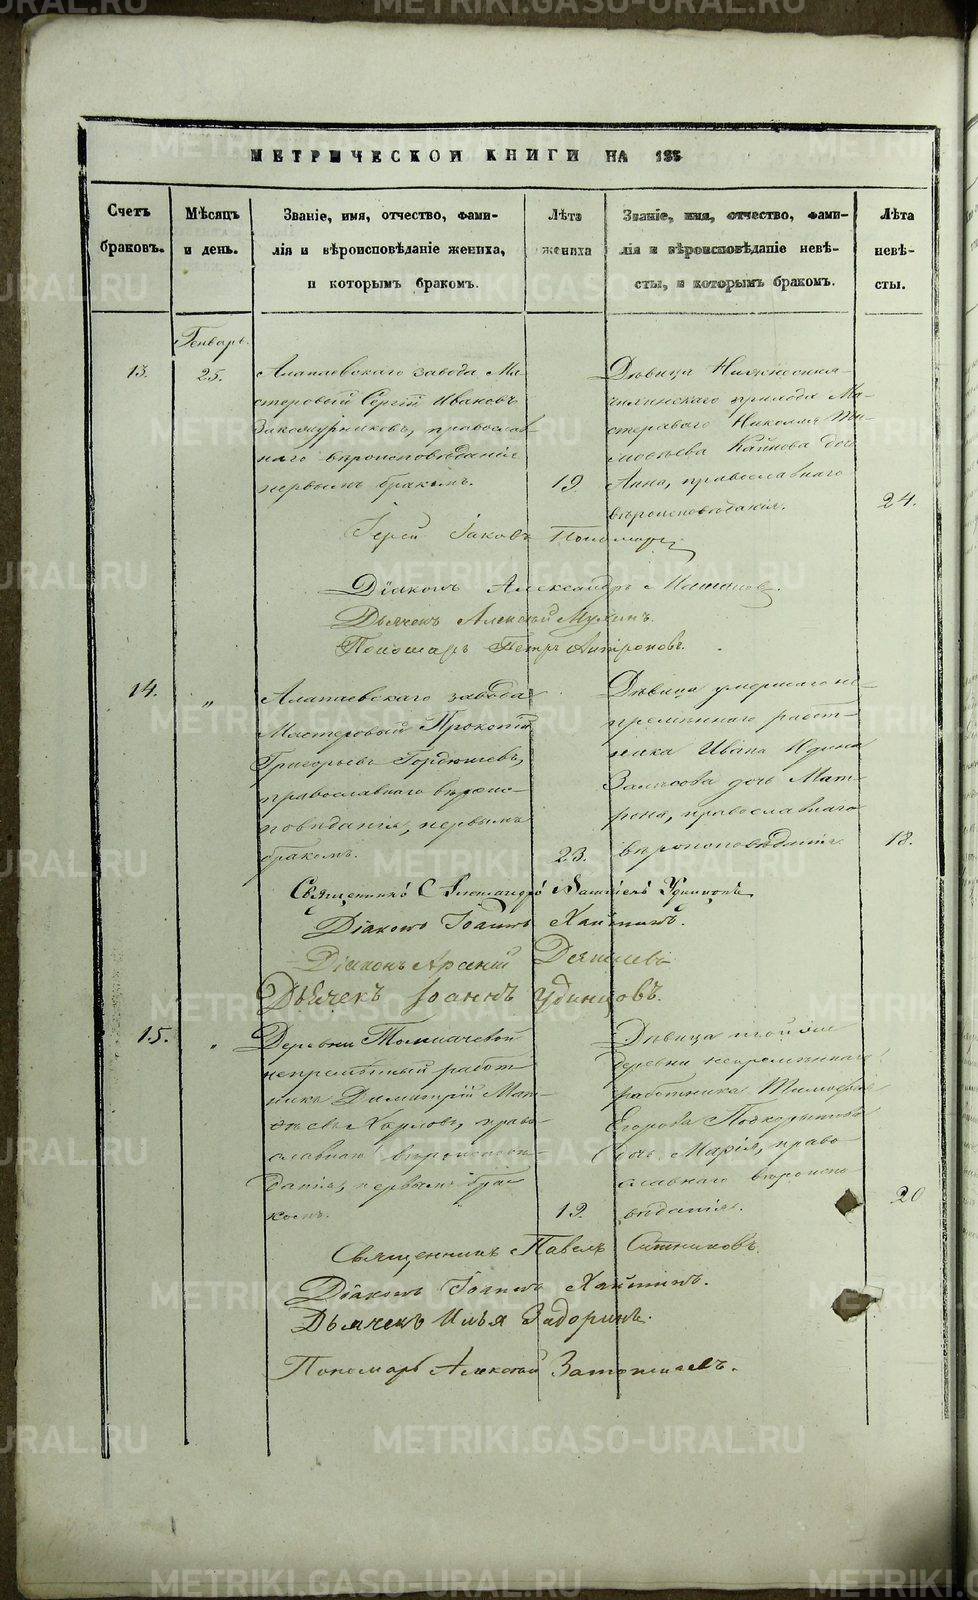 МЕТРИЧЕСКОЙ КНИГИ НА 185
Счетъ браковъ.
Мѣсяцъ и день.
Званіе, имя, отчество, фами-
лія и вѣроисповѣданіе жениха,
и которымъ бракомъ.
Лѣта жениха
Званіе, имя, отчество, фами-
лія и вѣроисповѣданіе невѣ-
сты, и которымъ бракомъ.
Лѣта невѣ-
сты.
Генварь.
13.
25.
Алапаевскаго завода Ма-
стеровый Сергій Ивановъ
православ-
наго вѣроисповѣданія
первымъ бракомъ.
19.
Дѣвица
прихода Ма-
стероваго Николая
дочь
Анна, православнаго
вѣроисповѣданія.
24.
Іерей Іаковъ
Діаконъ Александръ
Дьячекъ Алексѣй
Пономарь Петръ
14.
"
Алапаевскаго завода
Мастеровый Прокопій
Григорьевъ
православнаго вѣроис-
повѣданія, первымъ
бракомъ.
23.
Дѣвица умершаго не-
премѣннаго работ-
ника Ивана
дочь Мат-
рена, православнаго
вѣроисповѣданія
18.
Священникъ Александръ Удинцовъ
Діаконъ Іоаннъ
Діаконъ Арсеній
Дьячекъ Іоаннъ Удинцовъ.
15.
"
Деревни Толмачевой
непремѣнный работ-
никъ Димитрій Мат-
ѳѣевъ Харловъ, право-
славнаго вѣроисповѣ-
данія, первымъ бра-
комъ.
19.
Дѣвица тойже
деревни непремѣннаго
работника Тимофея
Егорова Подкорытова
дочь Марія, право-
славнаго вѣроиспо-
вѣданія.
20
Священникъ Павелъ Ситниковъ.
Діаконъ Іоаннъ
Дьячекъ Илья Задоринъ.
Пономарь Алексѣй
METRIKI.GASO-URAL.RU